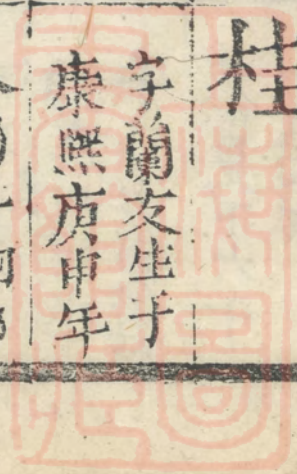 桂
字蘭友生于
康熙庚申年